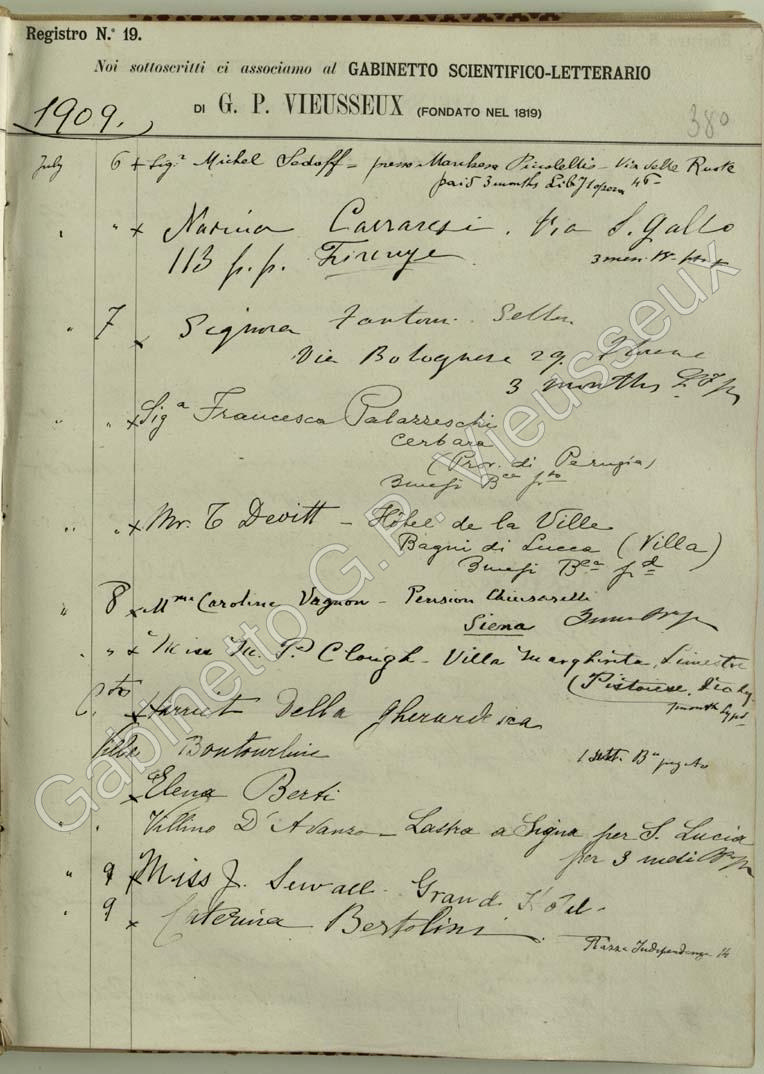 Registro N.° 19.
Noi sottoscritti ci associamo al GABINETTO SCIENTIFICO-LETTERARIO
DI G. P. VIEUSSEUX (FONDATO NEL 1819)
1909.
380
July 6 x Sig.r Michel Sedoff = presso Marchesa Piccolellis - Via delle Ruote
paid 3 months Lib 7 1 opera
" " x Carraresi. Via S. Gallo
113 p.p. Firenze
3 mesi
" 7 x Signora Fantoni
Via Bolognese 29. Florence
3 months
" " x Sig.a Francesca Palazzeschi
Cerbara
(Prov. di Perugia)
3 mesi
" " x Mr. T Devitt - Hôtel de la Ville
Bagni di Lucca (Villa)
3 mesi
" 8 x Mme Caroline Vagnon - Pension Chiusarelli
Siena
" " x Miss M. P. Clough - Villa Margherita, Limestre
(Pistoiese, Italy
1 month
x Harriet Della Gherardesca
Villa Boutourline
1
x Elena Berti
" " Villino D'Avanzo - Lastra a Signa per S. Lucia
per 3
" 9 x Miss J. Sewall - Grand Hotel.
" 9 x Caterina Bertolini
Piazza Indipendenza 14
Gabinetto G.P. Vieusseux